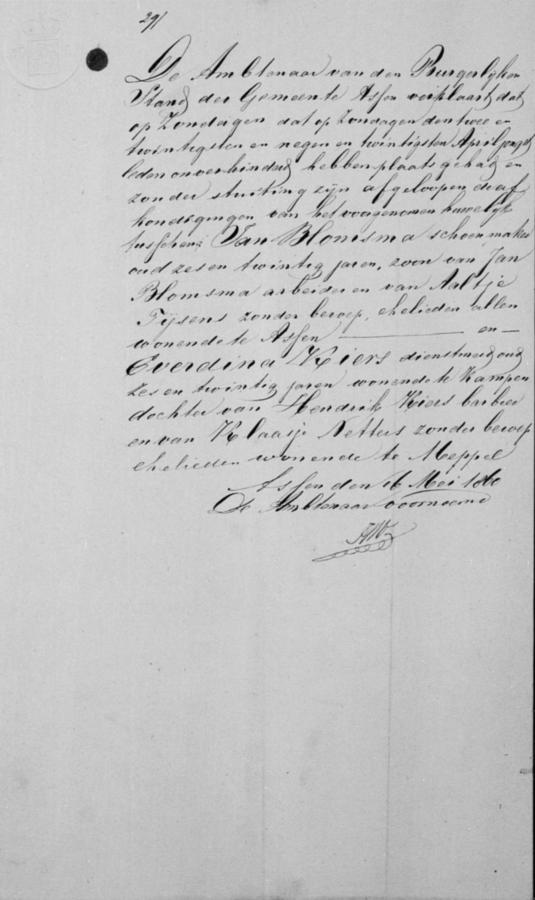 29/
De Ambtenaar van den Burgerlyken
Stand der Gemeente Assen verklaart dat
op Zondagen dat op Zondagen den twee en
twintigsten en negen en twintigsten April jongst
leden onverhinderd hebben plaats gehad en
zonder stuiting zijn afgeloopen de af
kondigingen van het voorgenomen huwelijk
tusschen: Jan Blomsma schoenmaker
oud zes en twintig jaren, zoon van Jan
Blomsma arbeider en van Aaltje
Tijsens zonder beroep, ehelieden allen
wonende te Assen ——— en —
Everdina Kiers dienstmeid oud
zes en twintig jaren wonende te Kampen
dochter van Hendrik Kiers barbier
en van Klaasje Netters zonder beroep
ehelieden wonende te Meppel
Assen den 16 Mei 1860
De Ambtenaar voornoemd